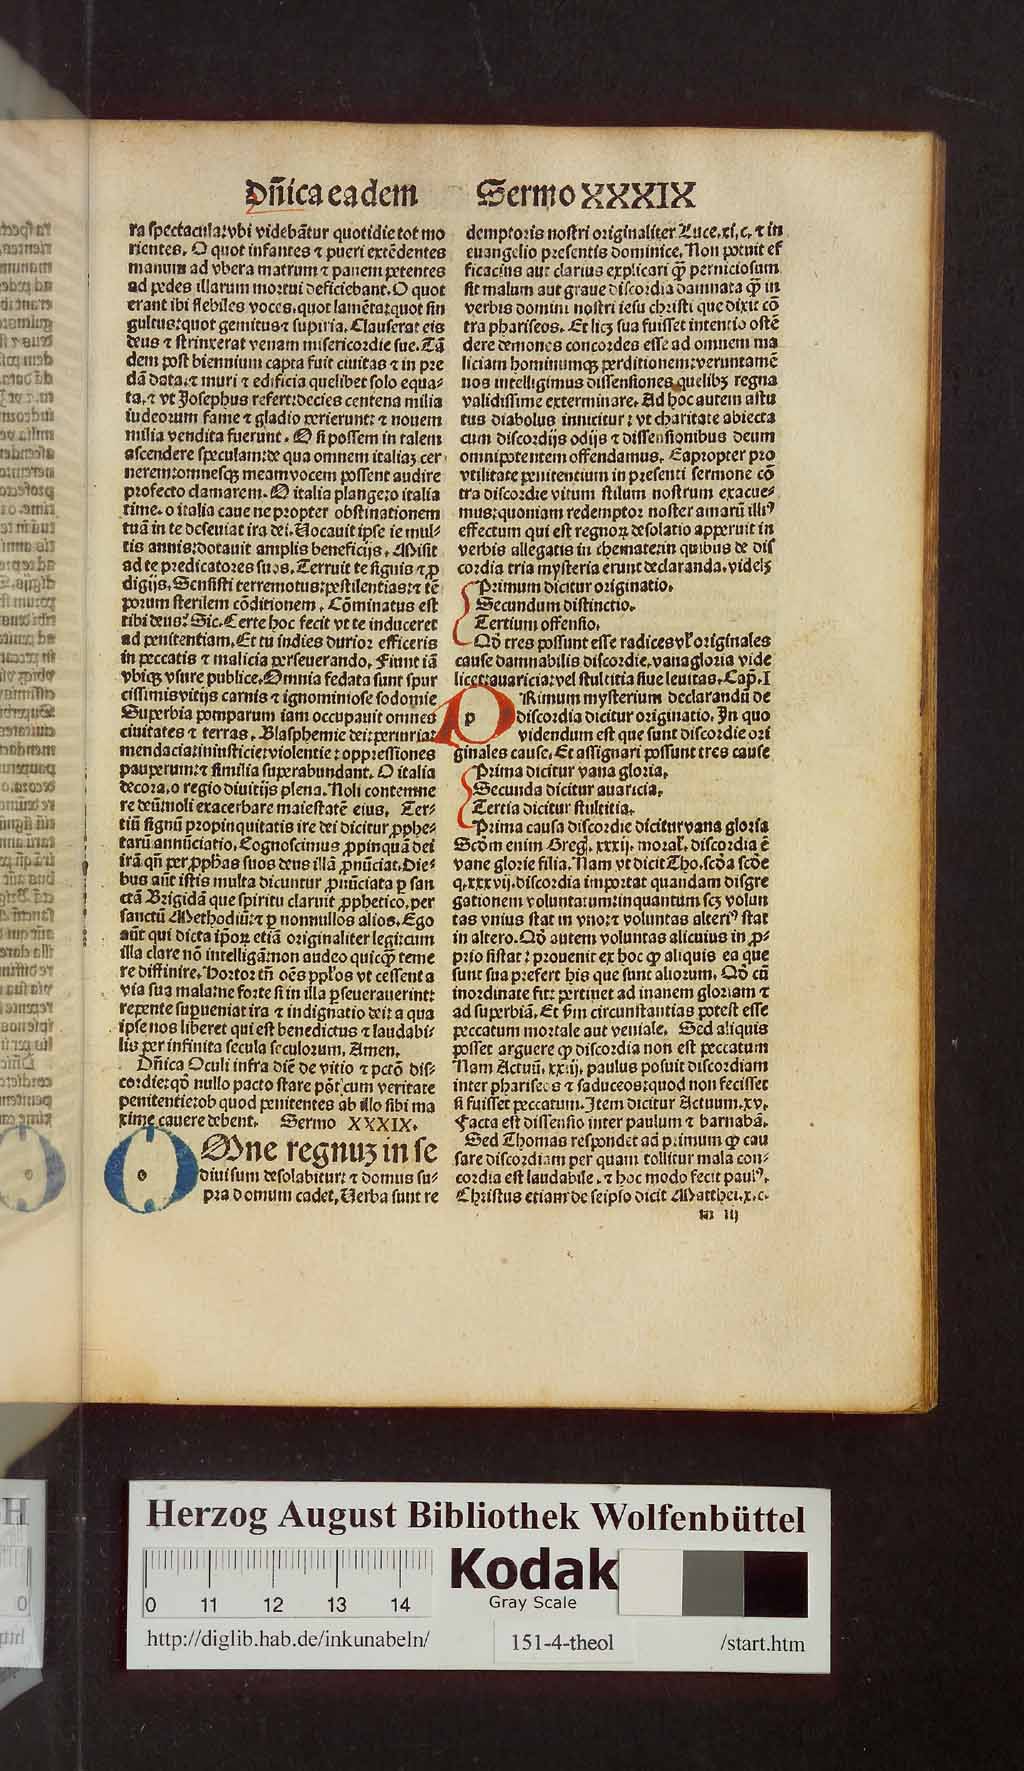 Dñica eadem Sermo XXXIX
ra spectacula: vbi videbãtur quotidie tot mo
rientes. O quot infantes ⁊ pueri extẽdentes
manum ad vbera matrum ⁊ panem petentes
ad pedes illarum mortui deficiebant. O quot
erant ibi flebiles voces. quot lamẽta: quot sin
gultus: quot gemitus ⁊ supiria. Clauserat eis
deus ⁊ strinxerat venam misericordie sue. Tã
dem post biennium capta fuit ciuitas ⁊ in pre
dã data. ⁊ muri ⁊ edificia quelibet solo equa-
ta. ⁊ vt Josephus refert: decies centena milia
iudeorum fame ⁊ gladio perierunt: ⁊ nouem
milia vendita fuerunt. O si possem in talem
ascendere speculam: de qua omnem italiaꝫ cer
nerem: omnesqꝫ meam vocem possent audire
profecto clamarem. O italia plange: o italia
time. o italia caue ne propter obstinationem
tuã in te deseuiat ira dei. Uocauit ipse te mul-
tis annis: dotauit amplis beneficijs. Misit
ad te predicatores suos. Terruit te signis ⁊ ꝓ
digijs. Sensisti terremotus: pestilentias: ⁊ tẽ
porum sterilem cõditionem. Cõminatus est
tibi deus? Sic. Certe hoc fecit vt te induceret
ad penitentiam. Et tu indies durior efficeris
in peccatis ⁊ malicia perseuerando. Fiunt iã
vbiqꝫ vsure publice. Omnia fedata sunt spur
cissimis vitijs carnis ⁊ ignominiose sodomie
Superbia pomparum iam occupauit omnes
ciuitates ⁊ terras. Blasphemie dei: periuria:
mendacia: iniusticie: violentie: oppressiones
pauperum: ⁊ similia superabundant. O italia
decora, o regio diuitijs plena. Noli contemne
re deũ: noli exacerbare maiestatẽ eius. Ter-
tiũ signũ propinquitatis ire dei dicitur ꝓphe-
tarũ annũciatio. Cognoscimus ꝓpinquã dei
irã qñ per ꝓphãs suos deus illã ꝓnũciat. Die-
bus aũt istis multa dicuntur ꝓnũciata ꝑ san
ctã Brigidã que spiritu claruit ꝓphetico, per
sanctũ Methodiũ: ⁊ ꝑ nonnullos alios. Ego
aũt qui dicta ip̃oꝝ etiã originaliter legi: cum
illa clare nõ intelligã: non audeo quicꝙ̃ teme
re diffinire. Hortor tñ oẽs pp̃los vt cessent a
via sua mala: ne forte si in illa ꝑseuerauerint:
repente supueniat ira ⁊ indignatio dei: a qua
ipse nos liberet qui est benedictus ⁊ laudabi-
lis per infinita secula seculorum, Amen.
Dñica Oculi infra diẽ de vitio ⁊ pctõ dis-
cordie: qõ nullo pacto stare põt cum veritate
penitentie: ob quod penitentes ab illo sibi ma
xime cauere debent. Sermo XXXIX.
OMne regnuꝫ in se
diuisum desolabitur: ⁊ domus su-
pra domum cadet. Uerba sunt re
demptoris nostri originaliter Luce. xi. c. ⁊ in
euangelio presentis dominice. Non potuit ef
ficacius aut clarius explicari ꝙ̃ perniciosum
sit malum aut graue discordia damnata ꝙ̃ in
verbis domini nostri iesu christi que dixit cõ
tra phariseos. Et licꝫ sua fuisset intentio ostẽ
dere demones concordes esse ad omnem ma
liciam hominumqꝫ perditionem: veruntamẽ
nos intelligimus dissensiones quelibꝫ regna
validissime exterminare. Ad hoc autem astu
tus diabolus innititur: vt charitate abiecta
cum discordijs odijs ⁊ dissensionibus deum
omnipotentem offendamus. Eapropter pro
vtilitate penitentium in presenti sermone cõ
tra discordie vitum stilum nostrum exacue-
mus: quoniam redemptor noster amarũ illiꝰ
effectum qui est regnoꝝ desolatio apperuit in
verbis allegatis in themate: in quibus de dis
cordia tria mysteria erunt declaranda. videlꝫ
Primum dicitur originatio.
Secundum distinctio.
Tertium offensio.
Qõ tres possunt esse radices vl̕ originales
cause damnabilis discordie. vana gloria vide
licet: auaricia: vel stultitia siue leuitas. Cap̃. I
PRimum mysterium declarandũ de
discordia dicitur originatio. In quo
videndum est que sunt discordie ori
ginales cause. Et assignari possunt tres cause
Prima dicitur vana gloria.
Secunda dicitur auaricia.
Tertia dicitur stultitia.
Prima causa discordie dicitur vana gloria
Scõm enim Greg̃. xxxij. moral̕. discordia ẽ
vane glorie filia. Nam vt dicit Tho. scõa scõe
q. xxxvij. discordia importat quandam disgre
gationem voluntatum: inquantum scꝫ volun
tas vnius stat in vno: ⁊ voluntas alteriꝰ stat
in altero. Qõ autem voluntas alicuius in ꝓ-
prio sistat: prouenit ex hoc ꝙ aliquis ea que
sunt sua prefert his que sunt aliorum. Qõ cũ
inordinate fit: pertinet ad inanem gloriam ⁊
ad superbiã. Et ẜm circunstantias potest esse
peccatum mortale aut veniale. Sed aliquis
posset arguere ꝙ discordia non est peccatum
Nam Actuũ. xxiij. paulus posuit discordiam
inter phariseos ⁊ saduceos: quod non fecisset
si fuisset peccatum. Item dicitur Actuum. xv.
Facta est dissensio inter paulum ⁊ barnabã.
Sed Thomas respondet ad primum ꝙ cau
sare discordiam per quam tollitur mala con-
cordia est laudabile. ⁊ hoc modo fecit paulꝰ.
Christus etiam de seipso dicit Matthei. x. c.
m iij
Herzog August Bibliothek Wolfenbüttel
Kodak
Gray Scale
0 11 12 13 14
http://diglib.hab.de/inkunabeln/ 151-4-theol /start.htm